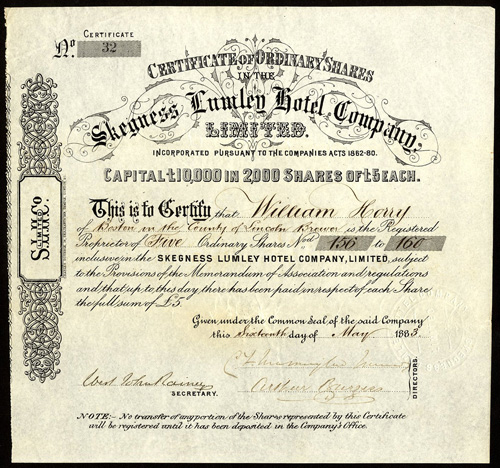 CERTIFICATE
No. 32
CERTIFICATE OF ORDINARY SHARES
IN THE
Skegness Lumley Hotel Company,
LIMITED.
INCORPORATED PURSUANT TO THE COMPANIES ACTS 1862-80.
CAPITAL £10,000 IN 2,000 SHARES OF £5 EACH.
This is to Certify that William Horry
of Boston in the County of Lincoln Brewer is the Registered
Proprietor of Five Ordinary Shares Nos 156 to 160
inclusive in the SKEGNESS LUMLEY HOTEL COMPANY, LIMITED, subject
to the Provisions of the Memorandum of Association and regulations
and that up to this day there has been paid in respect of each Share
the full sum of £5.
Given under the Common Seal of the said Company
this Sixteenth day of May 1883.
West John
SECRETARY.
Arthur
DIRECTORS.
NOTE:- No transfer of any portion of the Shares represented by this Certificate
will be registered until it has been deposited in the Company's Office.
LIMITED